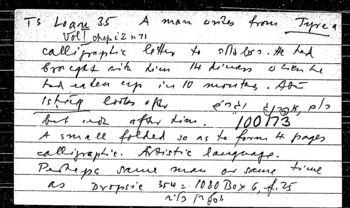 TS Loan 35 A man writes from Tyre a
calligraphic letter to
brought with him 14 dinars when he
had eaten up in 10 months.
looks after
but not after him. 100173
A small folded so as to form 4 pages
calligraphic. Artistic language.
Perhaps same man or same time
as Dropsie 354 = 1080 Box 6, f. 25